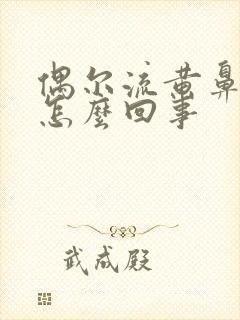 偶尔流黄鼻
怎麽回事
武成殿